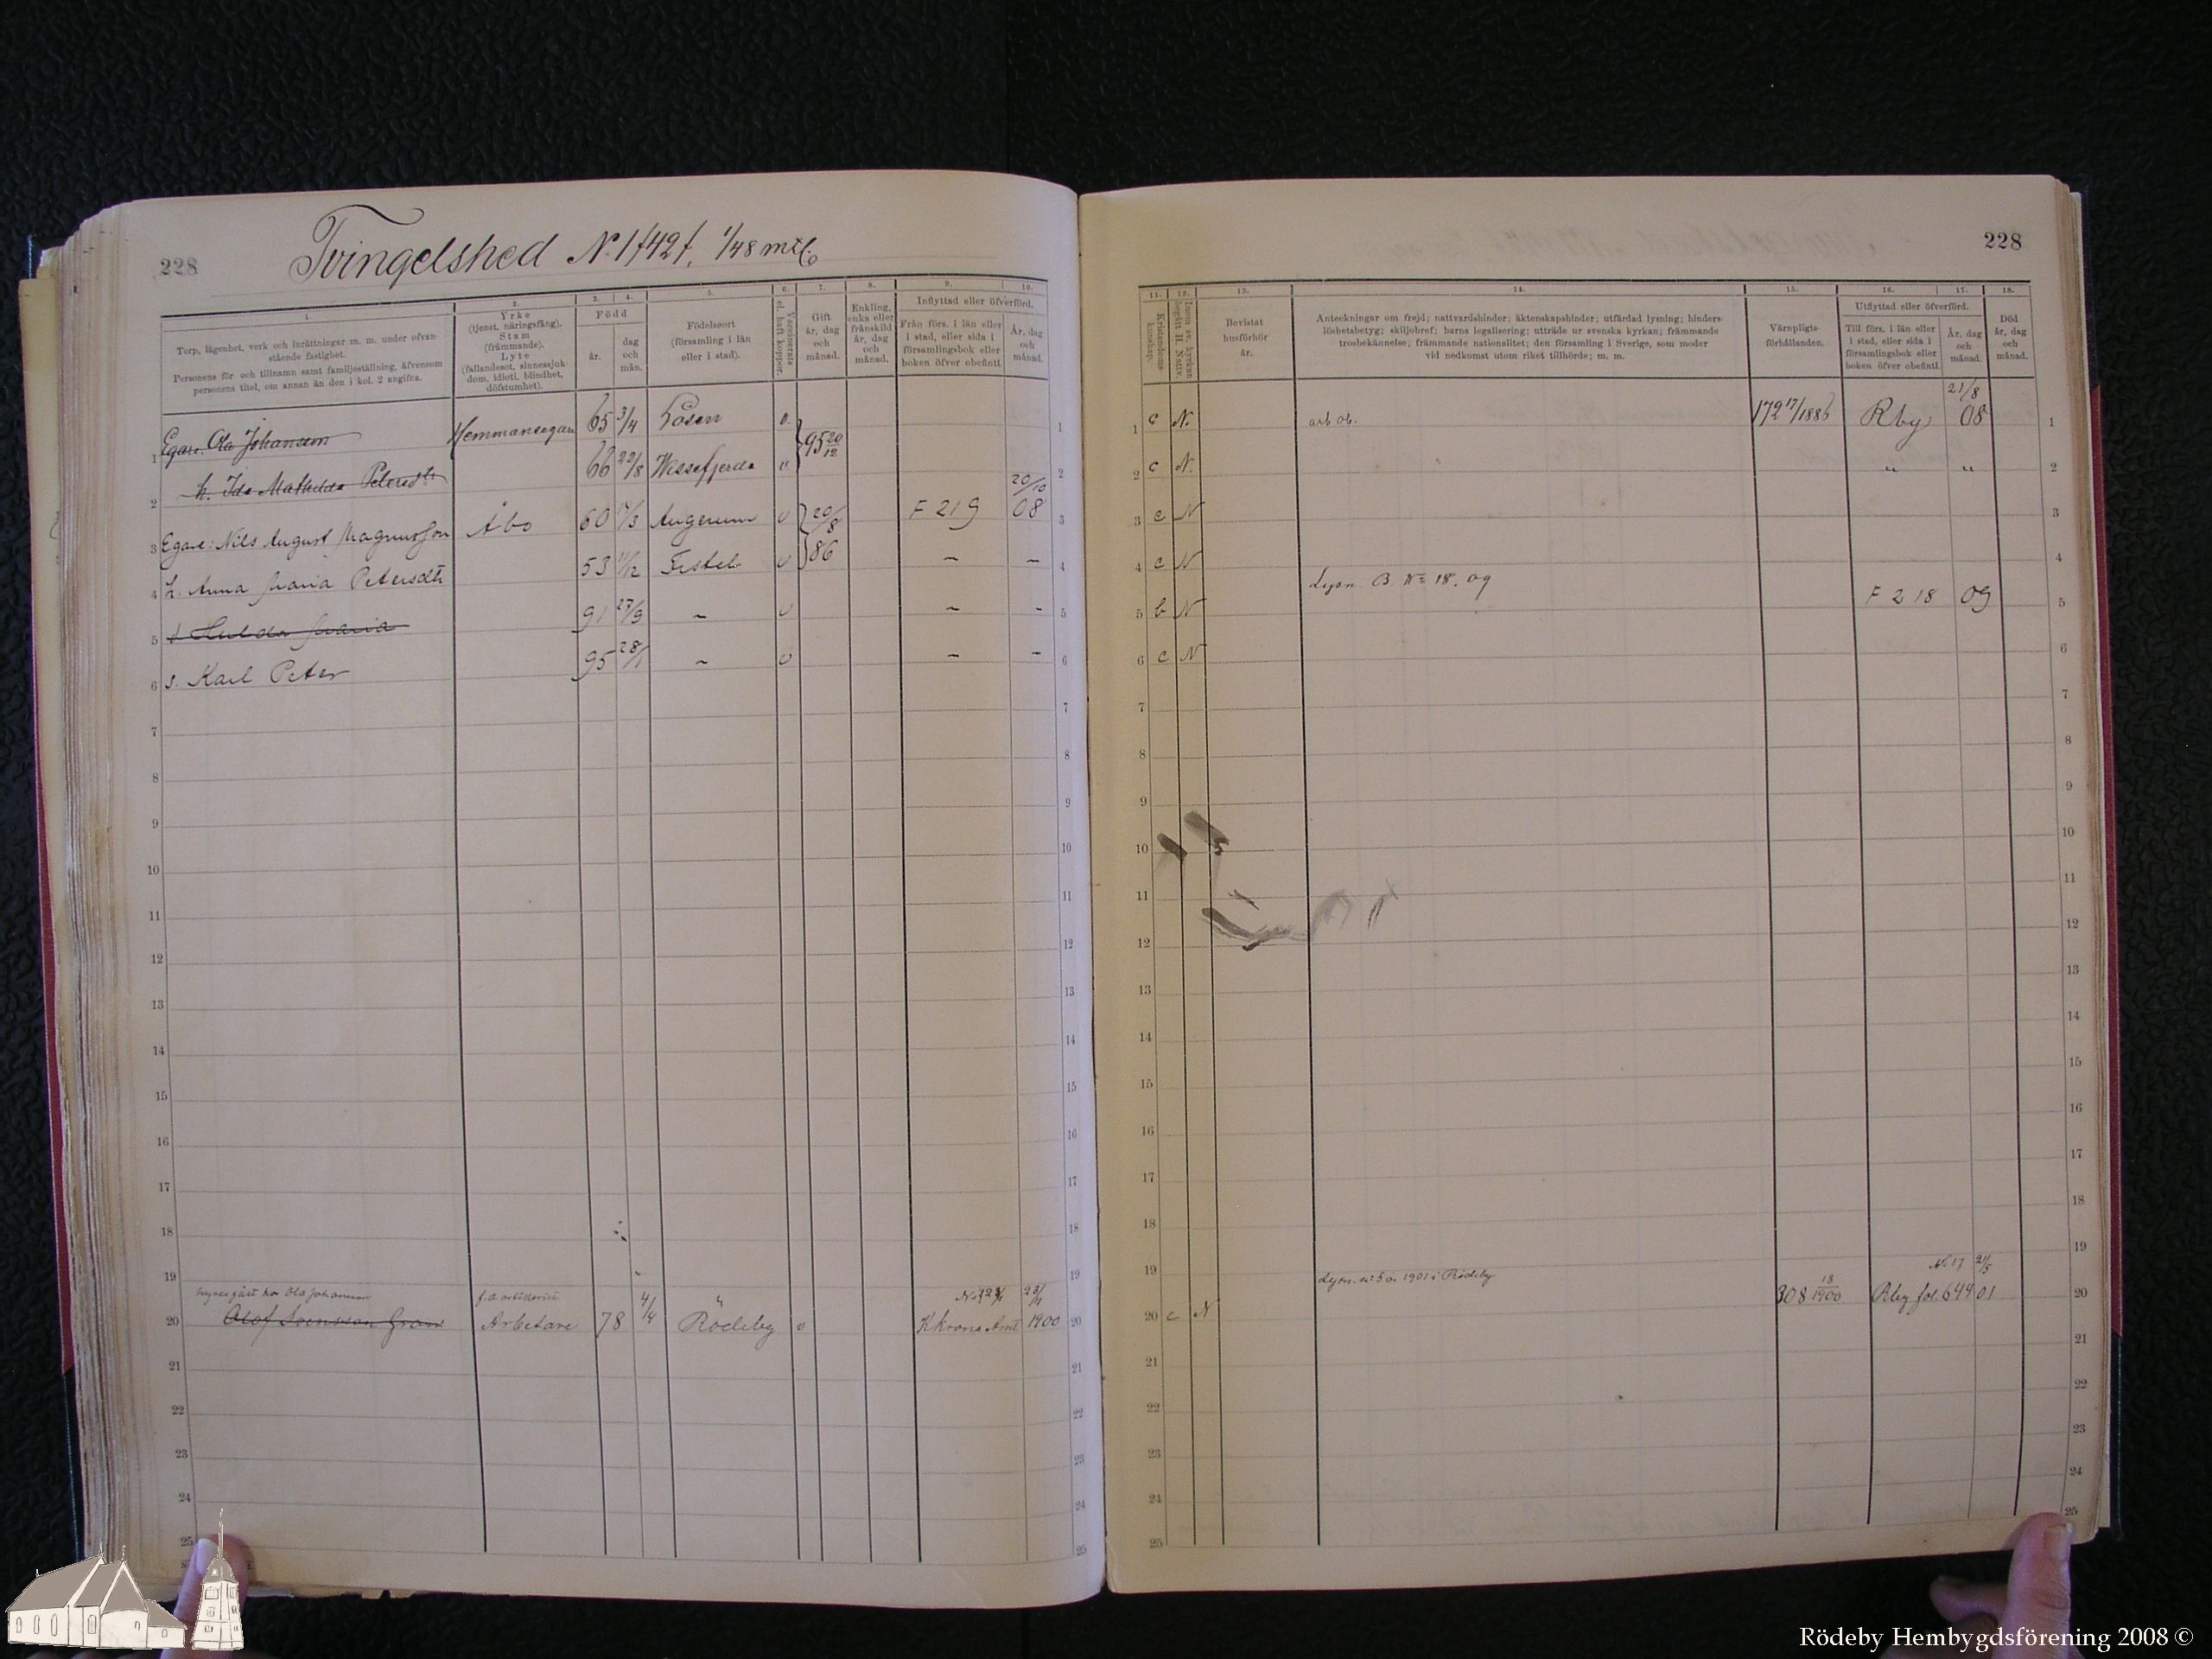 228
Tvingelshed N:1 /42/, 1/48 mtl.
1.
Torp, lägenhet, verk och inrättningar m. m. under ofvan-
stående fastighet.
Personens för- och tillnamn samt familjeställning, äfvensom
personens titel, om annan än den i kol. 2 angifna.
2.
Yrke
(tjenst, näringsfång).
Stam
(främmande).
Lyte
(fallandesot, sinnessjuk-
dom, idioti, blindhet,
döfstumhet).
3. 4.
Född
år.
dag
och
mån.
5.
Födelseort
(församling i län
eller i stad).
6.
Vaccinerats
el. haft koppor.
7.
Gift
år, dag
och
månad.
8.
Enkling,
enka eller
frånskild
år, dag
och
månad.
9. 10.
Inflyttad eller öfverförd.
Från förs. i län eller
i stad, eller sida i
församlingsbok eller
boken öfver obefintl.
År, dag
och
månad.
1 Egare. Ola Johansson Hemmansegare 65 3/4 Lösen v. 95 20/12 1
2 h. Ida Mathilda Petersdtr 66 22/8 Wissefjerda " 2
3 Egare: Nils August Magnusson Åbo 60 /3 Augerum v 20/8 86 F 219 20/10 08 3
4 h. Anna Maria Petersdtr 53 /12 Fristel v – – 4
5 d Hulda Maria 91 27/9 – v – - 5
6 s. Karl Peter 95 28/1 – v – – 6
7 7
8 8
9 9
10 10
11 11
12 12
13 13
14 14
15 15
16 16
17 17
18 18
19 19
hyresgäst hos Ola Johansson
20 Olof Svensson Gran Arbetare 78 4/4 Rödeby v Kkrona Amt 23/11 1900 20
21 21
22 22
23 23
24 24
25 25
228
11.
Kristendoms-
kunskap.
12.
13.
Bevistat
husförhör
år.
14.
Anteckningar om frejd; nattvardshinder; äktenskapshinder; utfärdad lysning; hinders-
löshetsbetyg; skiljobref; barns legalisering; utträde ur svenska kyrkan; främmande
trosbekännelse; främmande nationalitet; den församling i Sverige, som moder
vid nedkomst utom riket tillhörde; m. m.
15.
Värnpligts-
förhållanden.
16. 17.
Utflyttad eller öfverförd.
Till förs. i län eller
i stad, eller sida i
församlingsbok eller
boken öfver obefintl.
År, dag
och
månad.
18.
Död
år, dag
och
månad.
1 c N. arb ob. 172 17/1886 Rby 21/8 08 1
2 c N. " " 2
3 c N 3
4 c N 4
Lysn. B N= 18. 09
5 b N F 218 09 5
6 c N 6
7 7
8 8
9 9
10 10
11 11
12 12
13 13
14 14
15 15
16 16
17 17
18 18
19 19
Lysn. n:5 å 1901 i Rödeby
N:17 21/5
20 c N 308 18/1900 Rby fol. 644 01 20
21 21
22 22
23 23
24 24
25 25
Rödeby Hembygdsförening 2008 ©